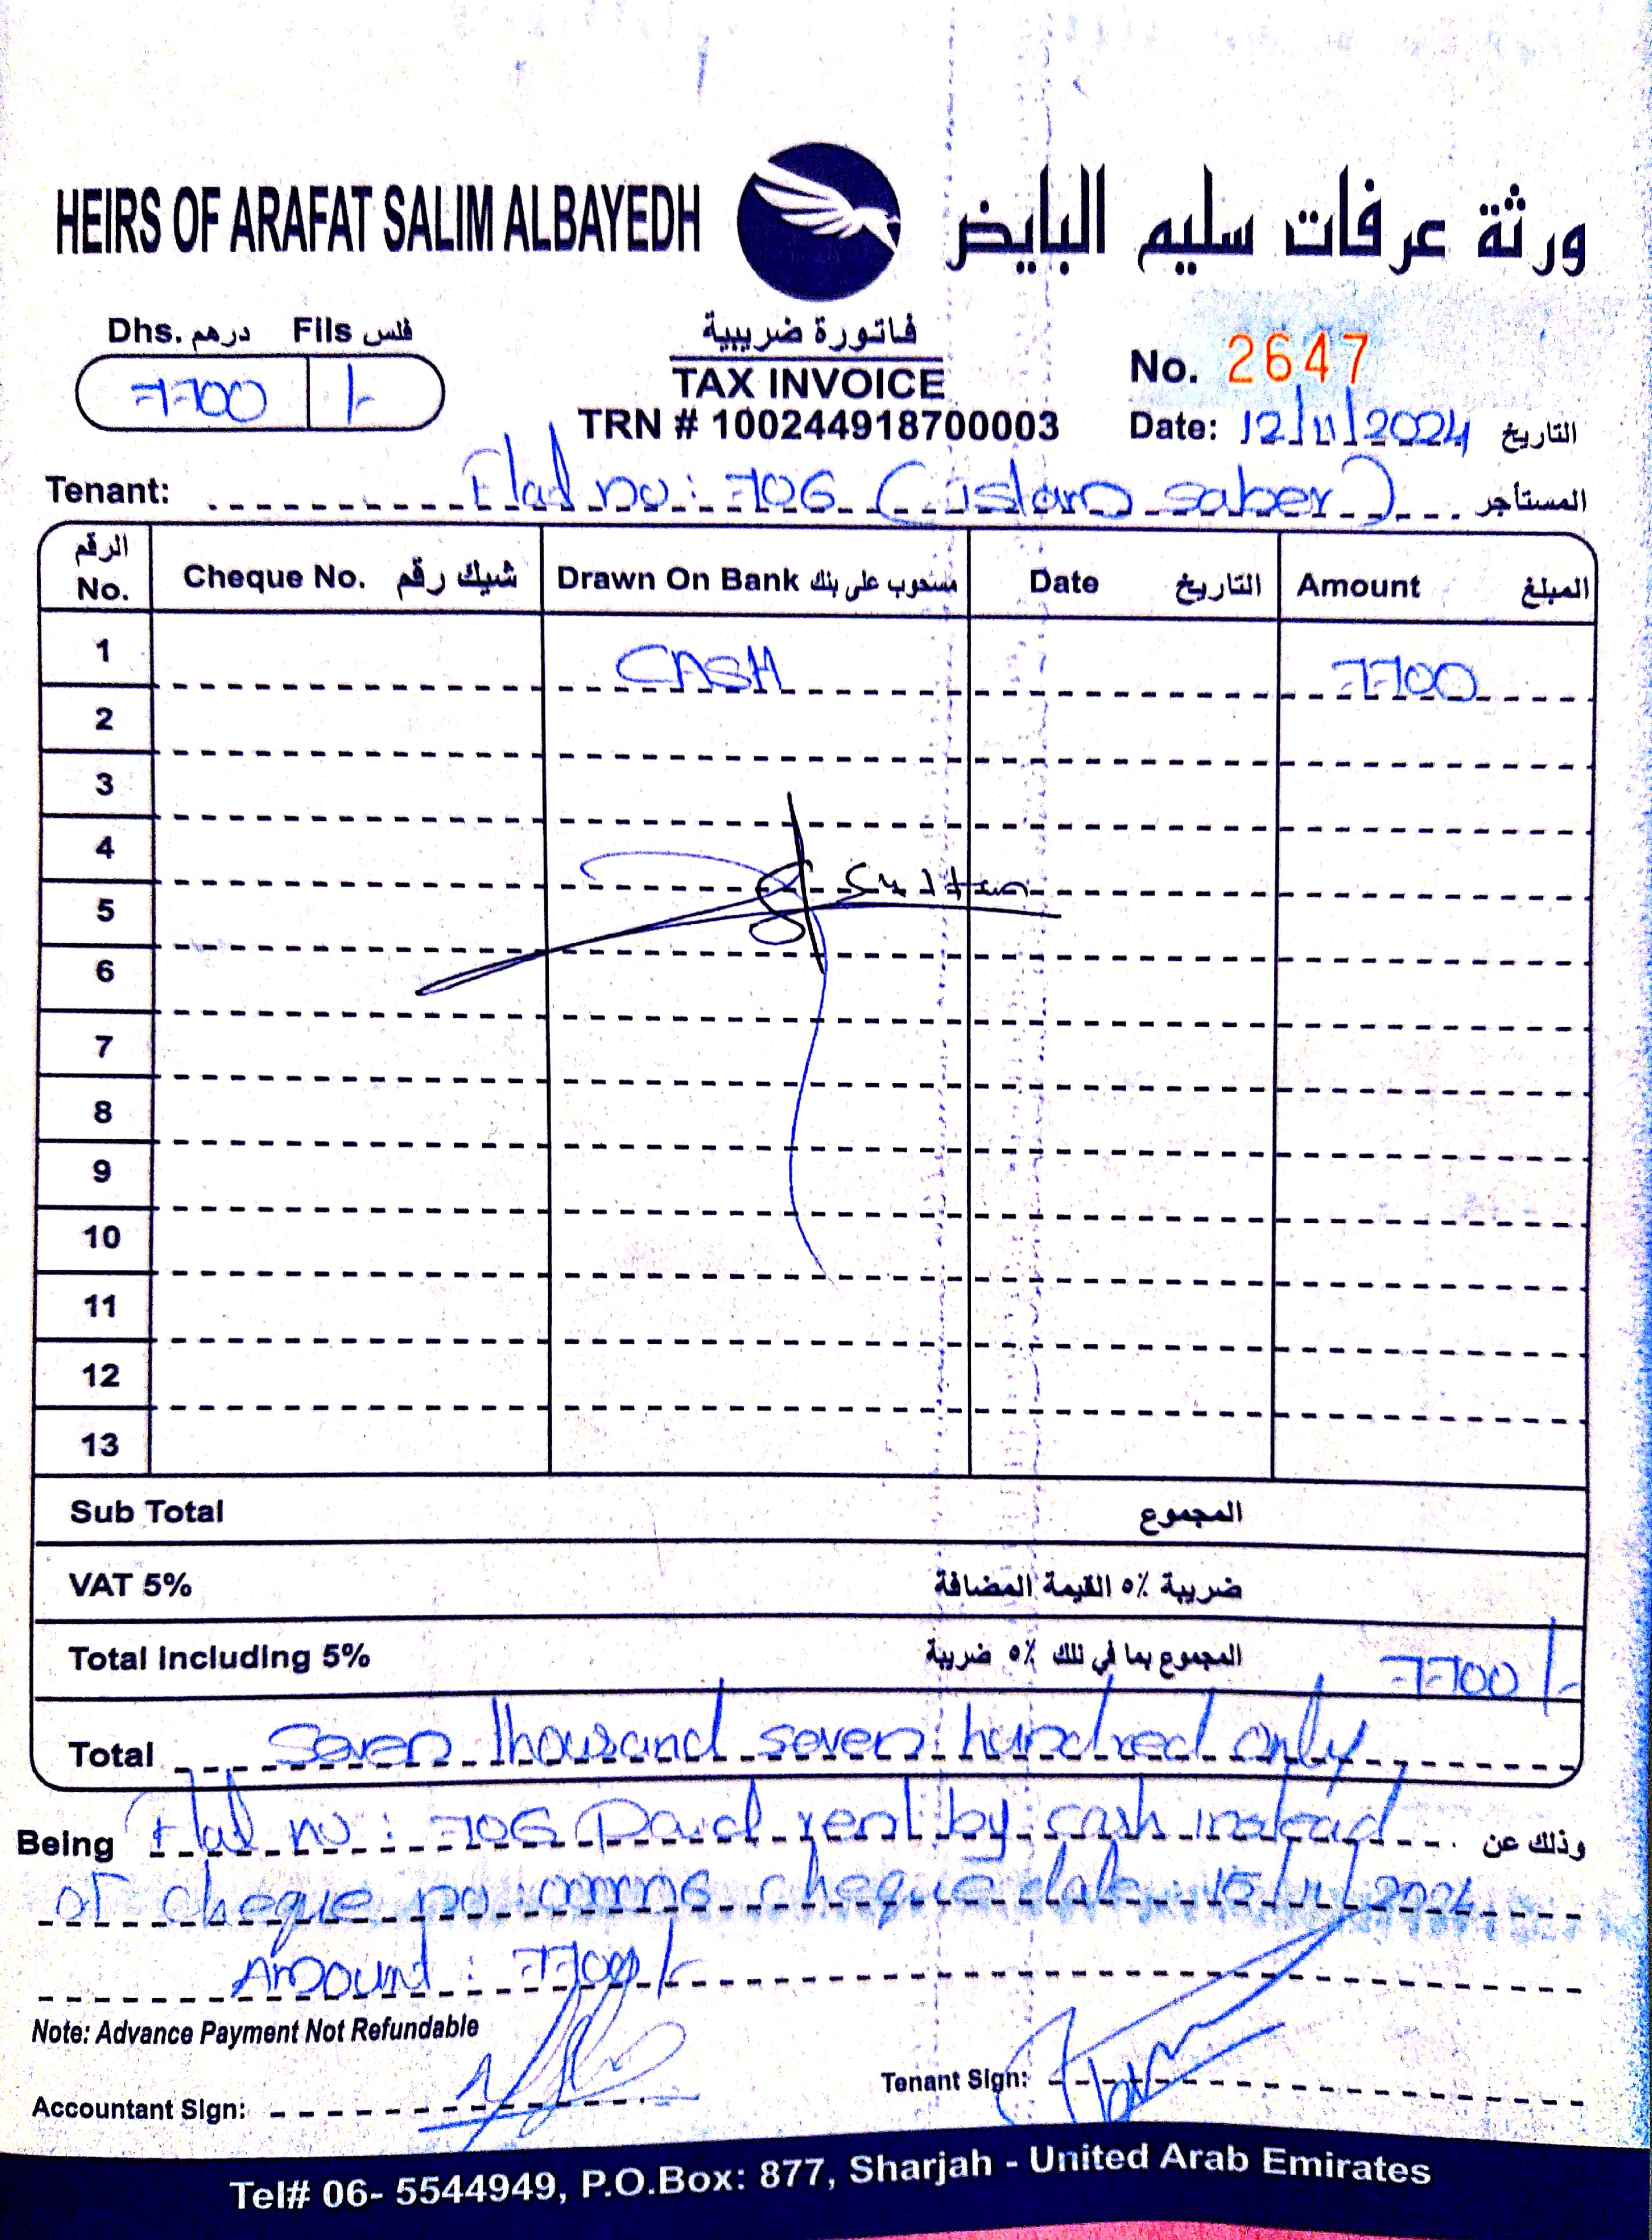 HEIRS OF ARAFAT SALIM ALBAYEDH ورثة عرفات سليم البايض
Dhs. درهم Fils فلس
7700 /-
فاتورة ضريبية
TAX INVOICE
TRN # 100244918700003
No. 2647
Date: 12/11/2024 التاريخ
Tenant: Flat no: 706 (islam saber) المستأجر
الرقم No. Cheque No. شيك رقم Drawn On Bank مسحوب على بنك Date التاريخ Amount المبلغ
1 CASH 7700
2
3
4
Sultan
5
6
7
8
9
10
11
12
13
Sub Total المجموع
VAT 5% ضريبة ٥٪ القيمة المضافة
Total including 5% المجموع بما في ذلك ٥٪ ضريبة 7700/-
Total Seven thousand seven hundred only
Being Flat no: 706 Paid rent by cash instead وذلك عن
of cheque no: 000006 cheque date: 15/11/2024
Amount: 7700/-
Note: Advance Payment Not Refundable
Accountant Sign: Tenant Sign:
Tel# 06- 5544949, P.O.Box: 877, Sharjah - United Arab Emirates